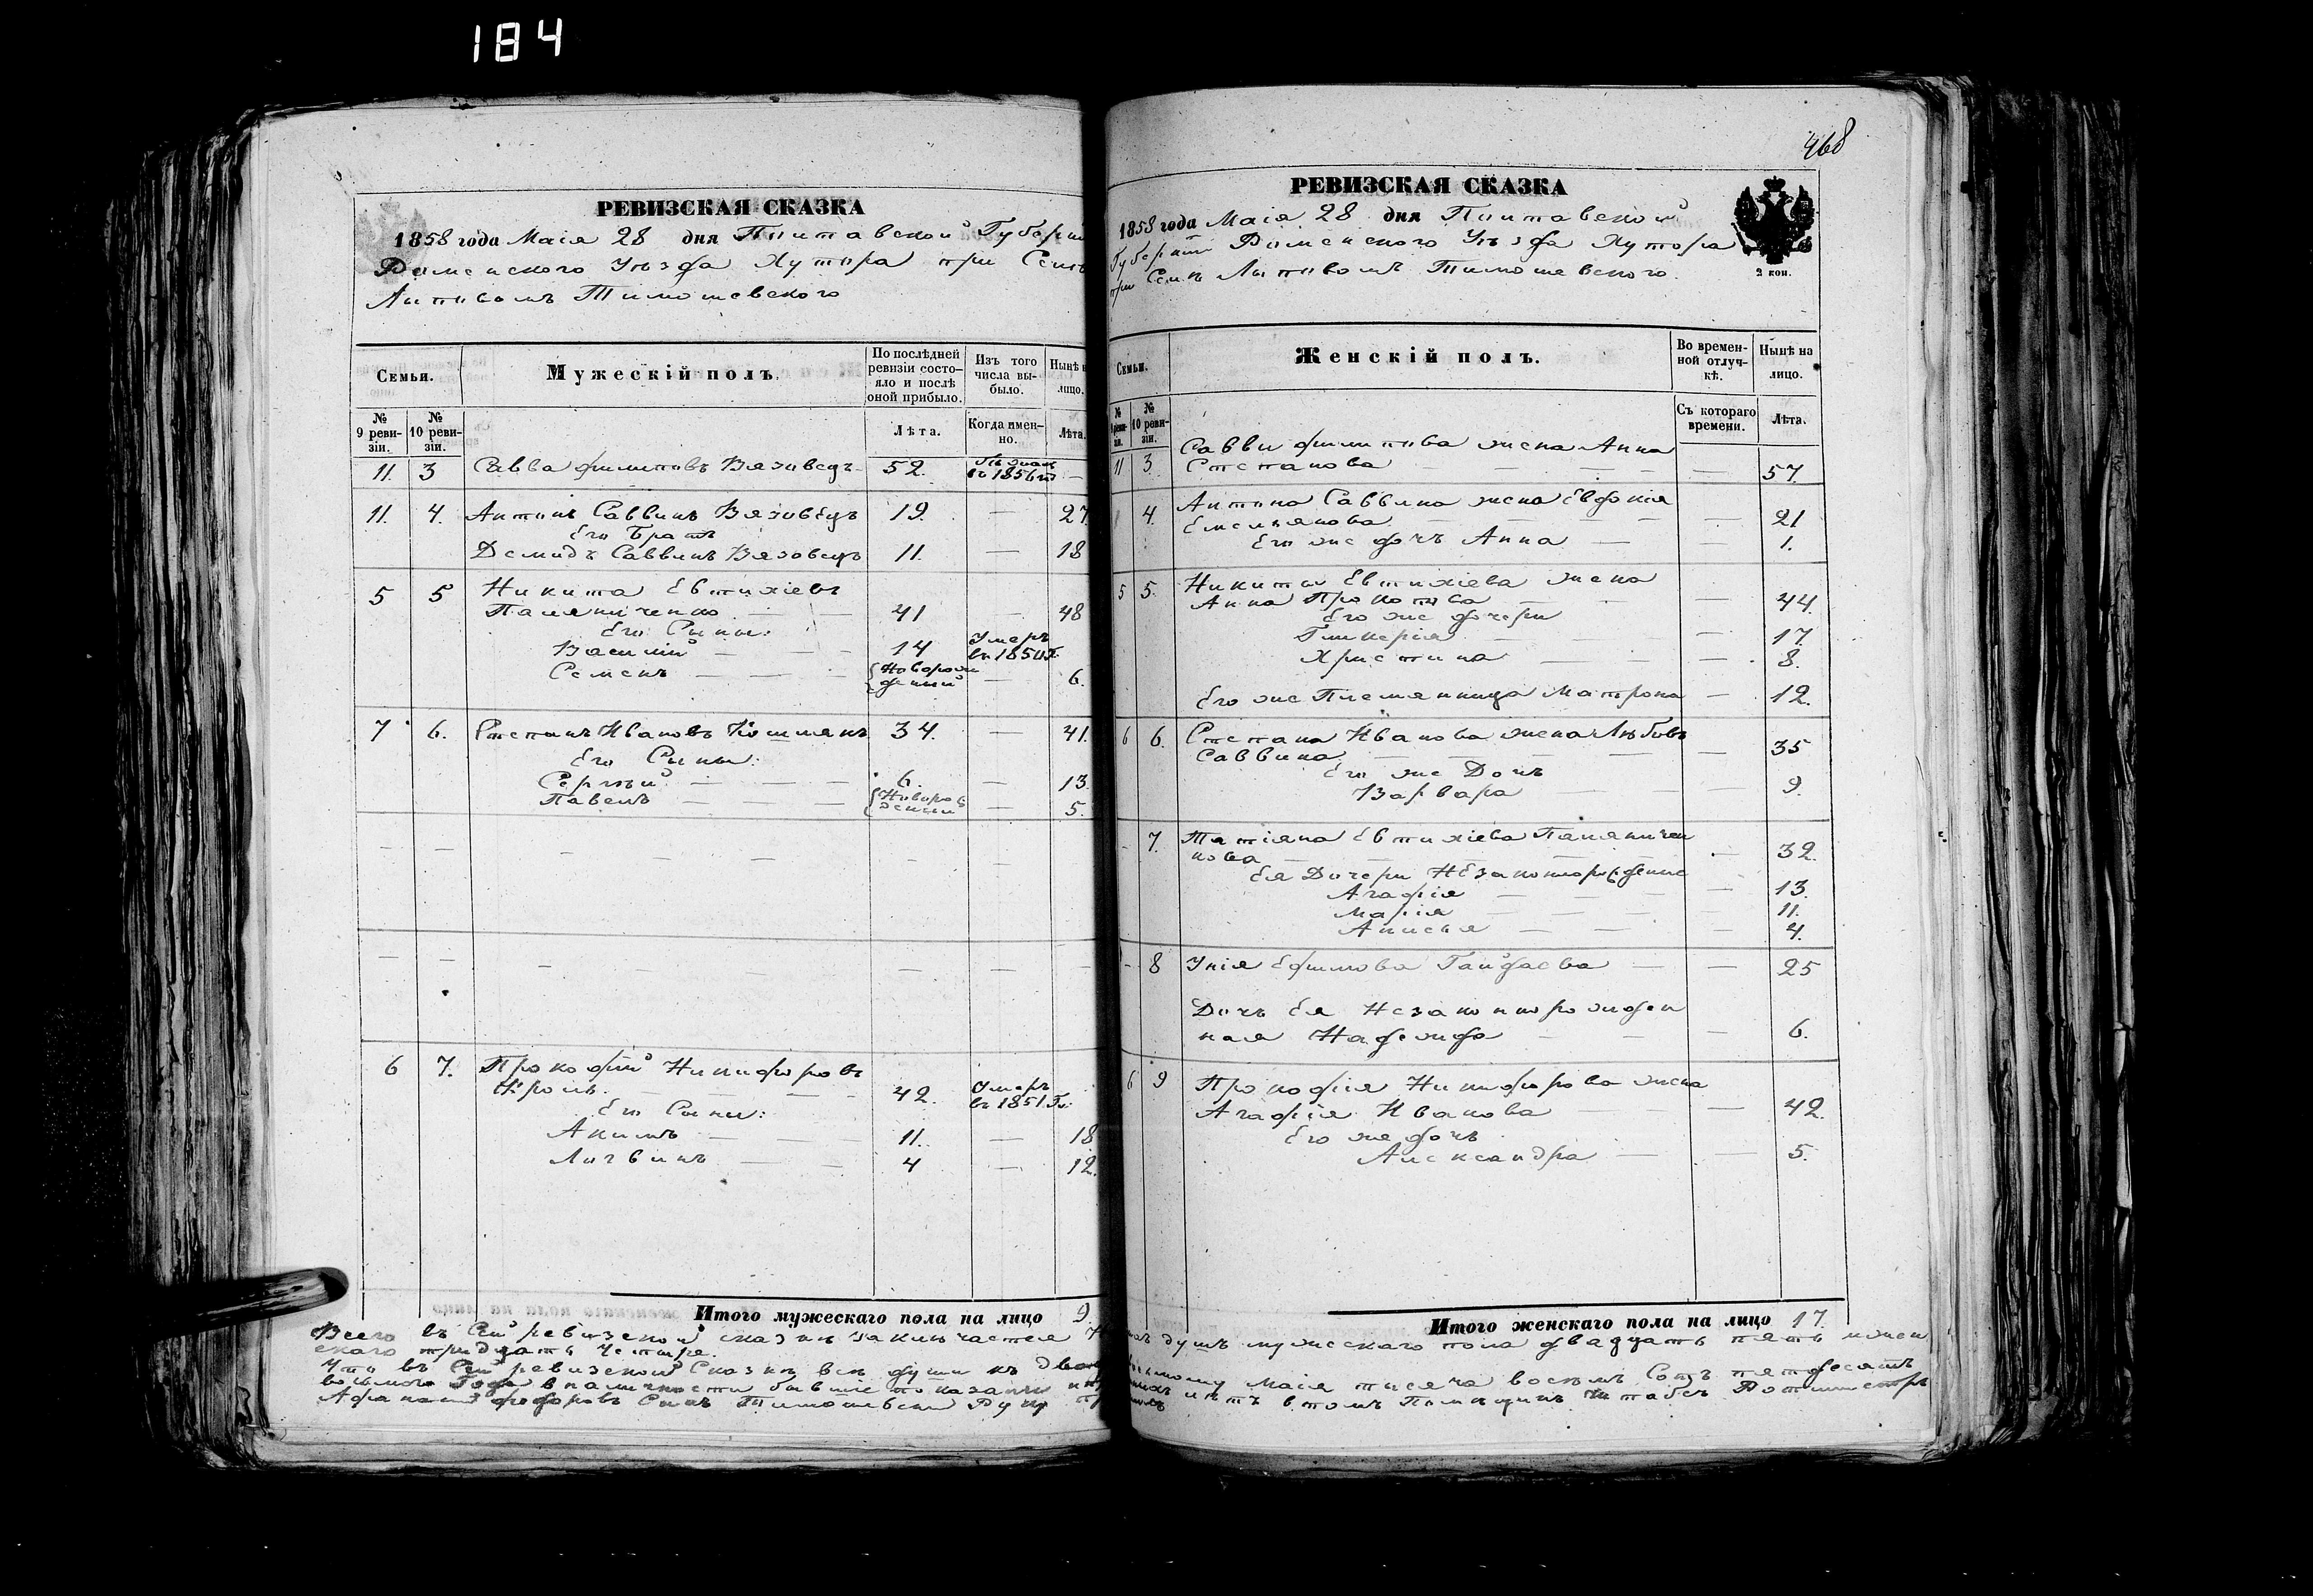 184
РЕВИЗСКАЯ СКАЗКА
1858 года Маія 28 дня Полтавской Губерніи
Роменскаго Уѣзда Хутора при Селѣ
Липовомъ Тимошевскаго
Семьи.
Мужескій полъ.
По послѣдней ревизіи состо-
яло и послѣ
оной прибыло.
Изъ того
числа вы-
было.
Нынѣ н
лицо.
№
9 реви-
зіи.
№
10 реви-
зіи.
Лѣта.
Когда имен-
но.
Лѣта.
11 3 Савва Филиповъ Вязовецъ 52. въ 1856 —
11. 4. Антонъ Саввинъ Вязовецъ 19. — 27
Его Братъ
Демидъ Саввинъ Вязовецъ 11. — 18
5 5 Никита Евтихіевъ
Паляниченко — 41 — 48
Его Сыны:
Василій — 14 Умеръ въ 1850 г.
Семенъ — Новорожденный — 6.
7 6. Степанъ Ивановъ 34. — 41.
Его Сыны:
Сергѣй — 6. — 13
Павелъ — Новорожденный — 5.
6 7. Прокофій Никифоровъ
Кроль. — 42. Умеръ въ 1851 г.
Его Сыны:
Акимъ — 11. — 18
Логвинъ — 4 — 12.
Итого мужескаго пола на лицо 9.
Всего въ Сей ревизской сказкѣ заключается
скаго тридцать четыре.
Что въ Сей ревизской Сказкѣ всѣ души къ
Года въ наличности бывшіе показаны
Афанасій Федоровъ Сынъ Тимошевскій Руку
468
РЕВИЗСКАЯ СКАЗКА
1858 года Маія 28 дня Полтавской
Губерніи Роменскаго Уѣзда Хутора
при Селѣ Липовомъ Тимошевскаго.
2 коп.
Семьи.
Женскій полъ.
Во времен-
ной отлуч-
кѣ.
Нынѣ на
лицо.
№
№
10 реви-
зіи.
Съ котораго
времени.
Лѣта.
11 3. Саввы Филипова жена Анна
Степанова — — 57.
4. Антона Саввина жена Евдокія
Емельянова — — 21
Его же дочь Анна — — 1.
5 5. Никиты Евтихіева жена
Анна Прокопова — — 44.
Его же дочери
Гликерія — — 17
Христина — — 8.
Его же Племянница Матрона — 12.
6 6. Степана Иванова жена Любовь
Саввина — — 35
Его же Дочь
Варвара — — 9.
- 7. Татіяна Евтихіева Паляничен
кова — — 32.
Ея Дочери Незаконнорожденные
Агафія — — 13.
Марія — — 11.
Анисья — — 4.
- 8 Улія Ефимова Гайдаева — — 25
Дочь Ея Незаконнорожден
ная Надежда — — 6.
6 9 Прокофія Никифорова жена
Агафія Иванова — — 42.
Его же дочь
Александра — — 5.
Итого женскаго пола на лицо 17.
душъ мужескаго пола двадцать пять и жен
Маія тысяча восемь Сотъ пятдесятъ
нѣтъ в томъ Помѣщикъ Штабсъ Ротмистръ